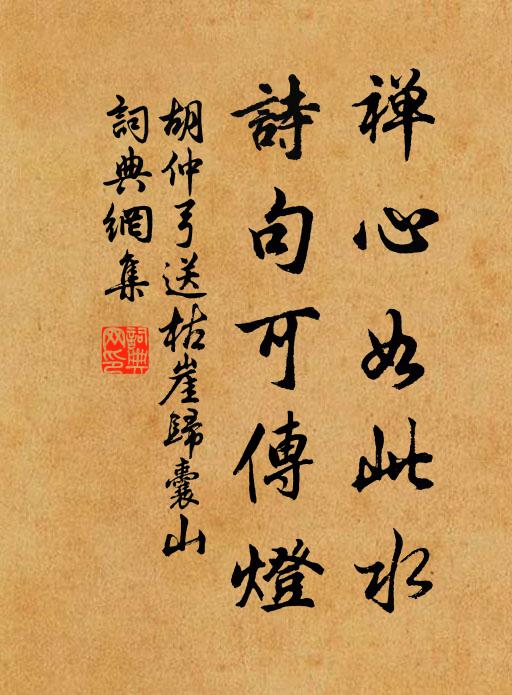 禅心如此水
詩句可傳燈
胡仲弓送枯崖歸囊山
詞典網集
詞典
网印